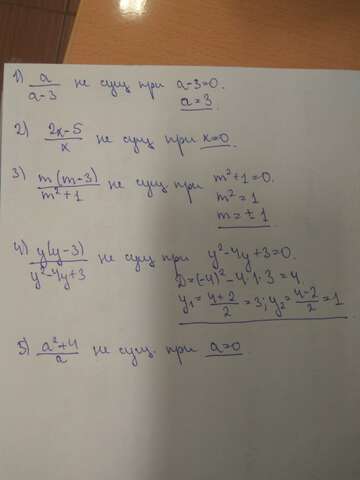 1) a/(a-3) не сущ при a-3=0.
a=3.
2) (2x-5)/x не сущ при x=0.
3) m(m-3)/(m²+1) не сущ при m²+1=0.
m²=1
m=±1.
4) y(y-3)/(y²-4y+3) не сущ при y²-4y+3=0.
D=(-4)²-4·1·3=4
y₁=(4+2)/2=3; y₂=(4-2)/2=1
5) (a²+4)/a не сущ. при a=0.